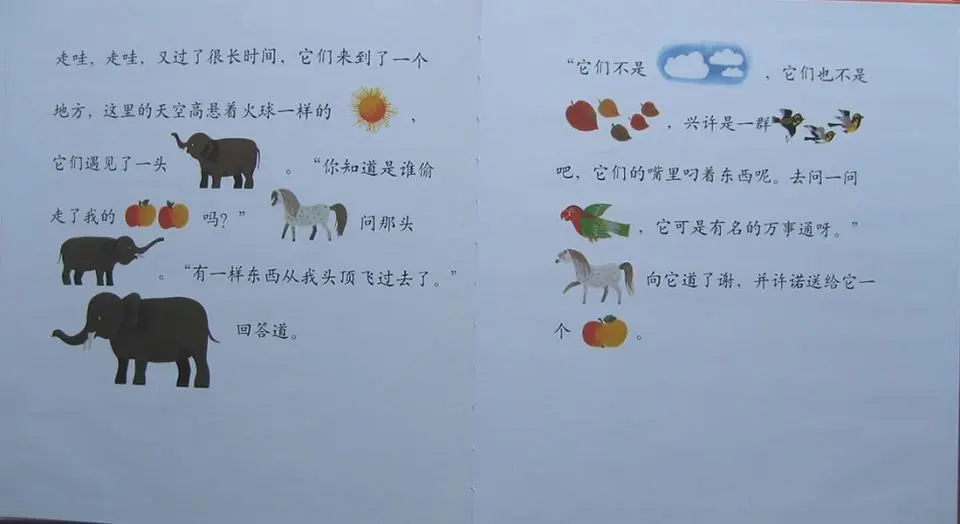 走哇，走哇，又过了很长时间，它们来到了一个
地方，这里的天空高悬着火球一样的 ，
它们遇见了一头 。“你知道是谁偷
走了我的 吗？” 问那头
。“有一样东西从我头顶飞过去了。”
回答道。
“它们不是 ，它们也不是
，兴许是一群
吧，它们的嘴里叼着东西呢。去问一问
，它可是有名的万事通呀。”
向它道了谢，并许诺送给它一
个 。